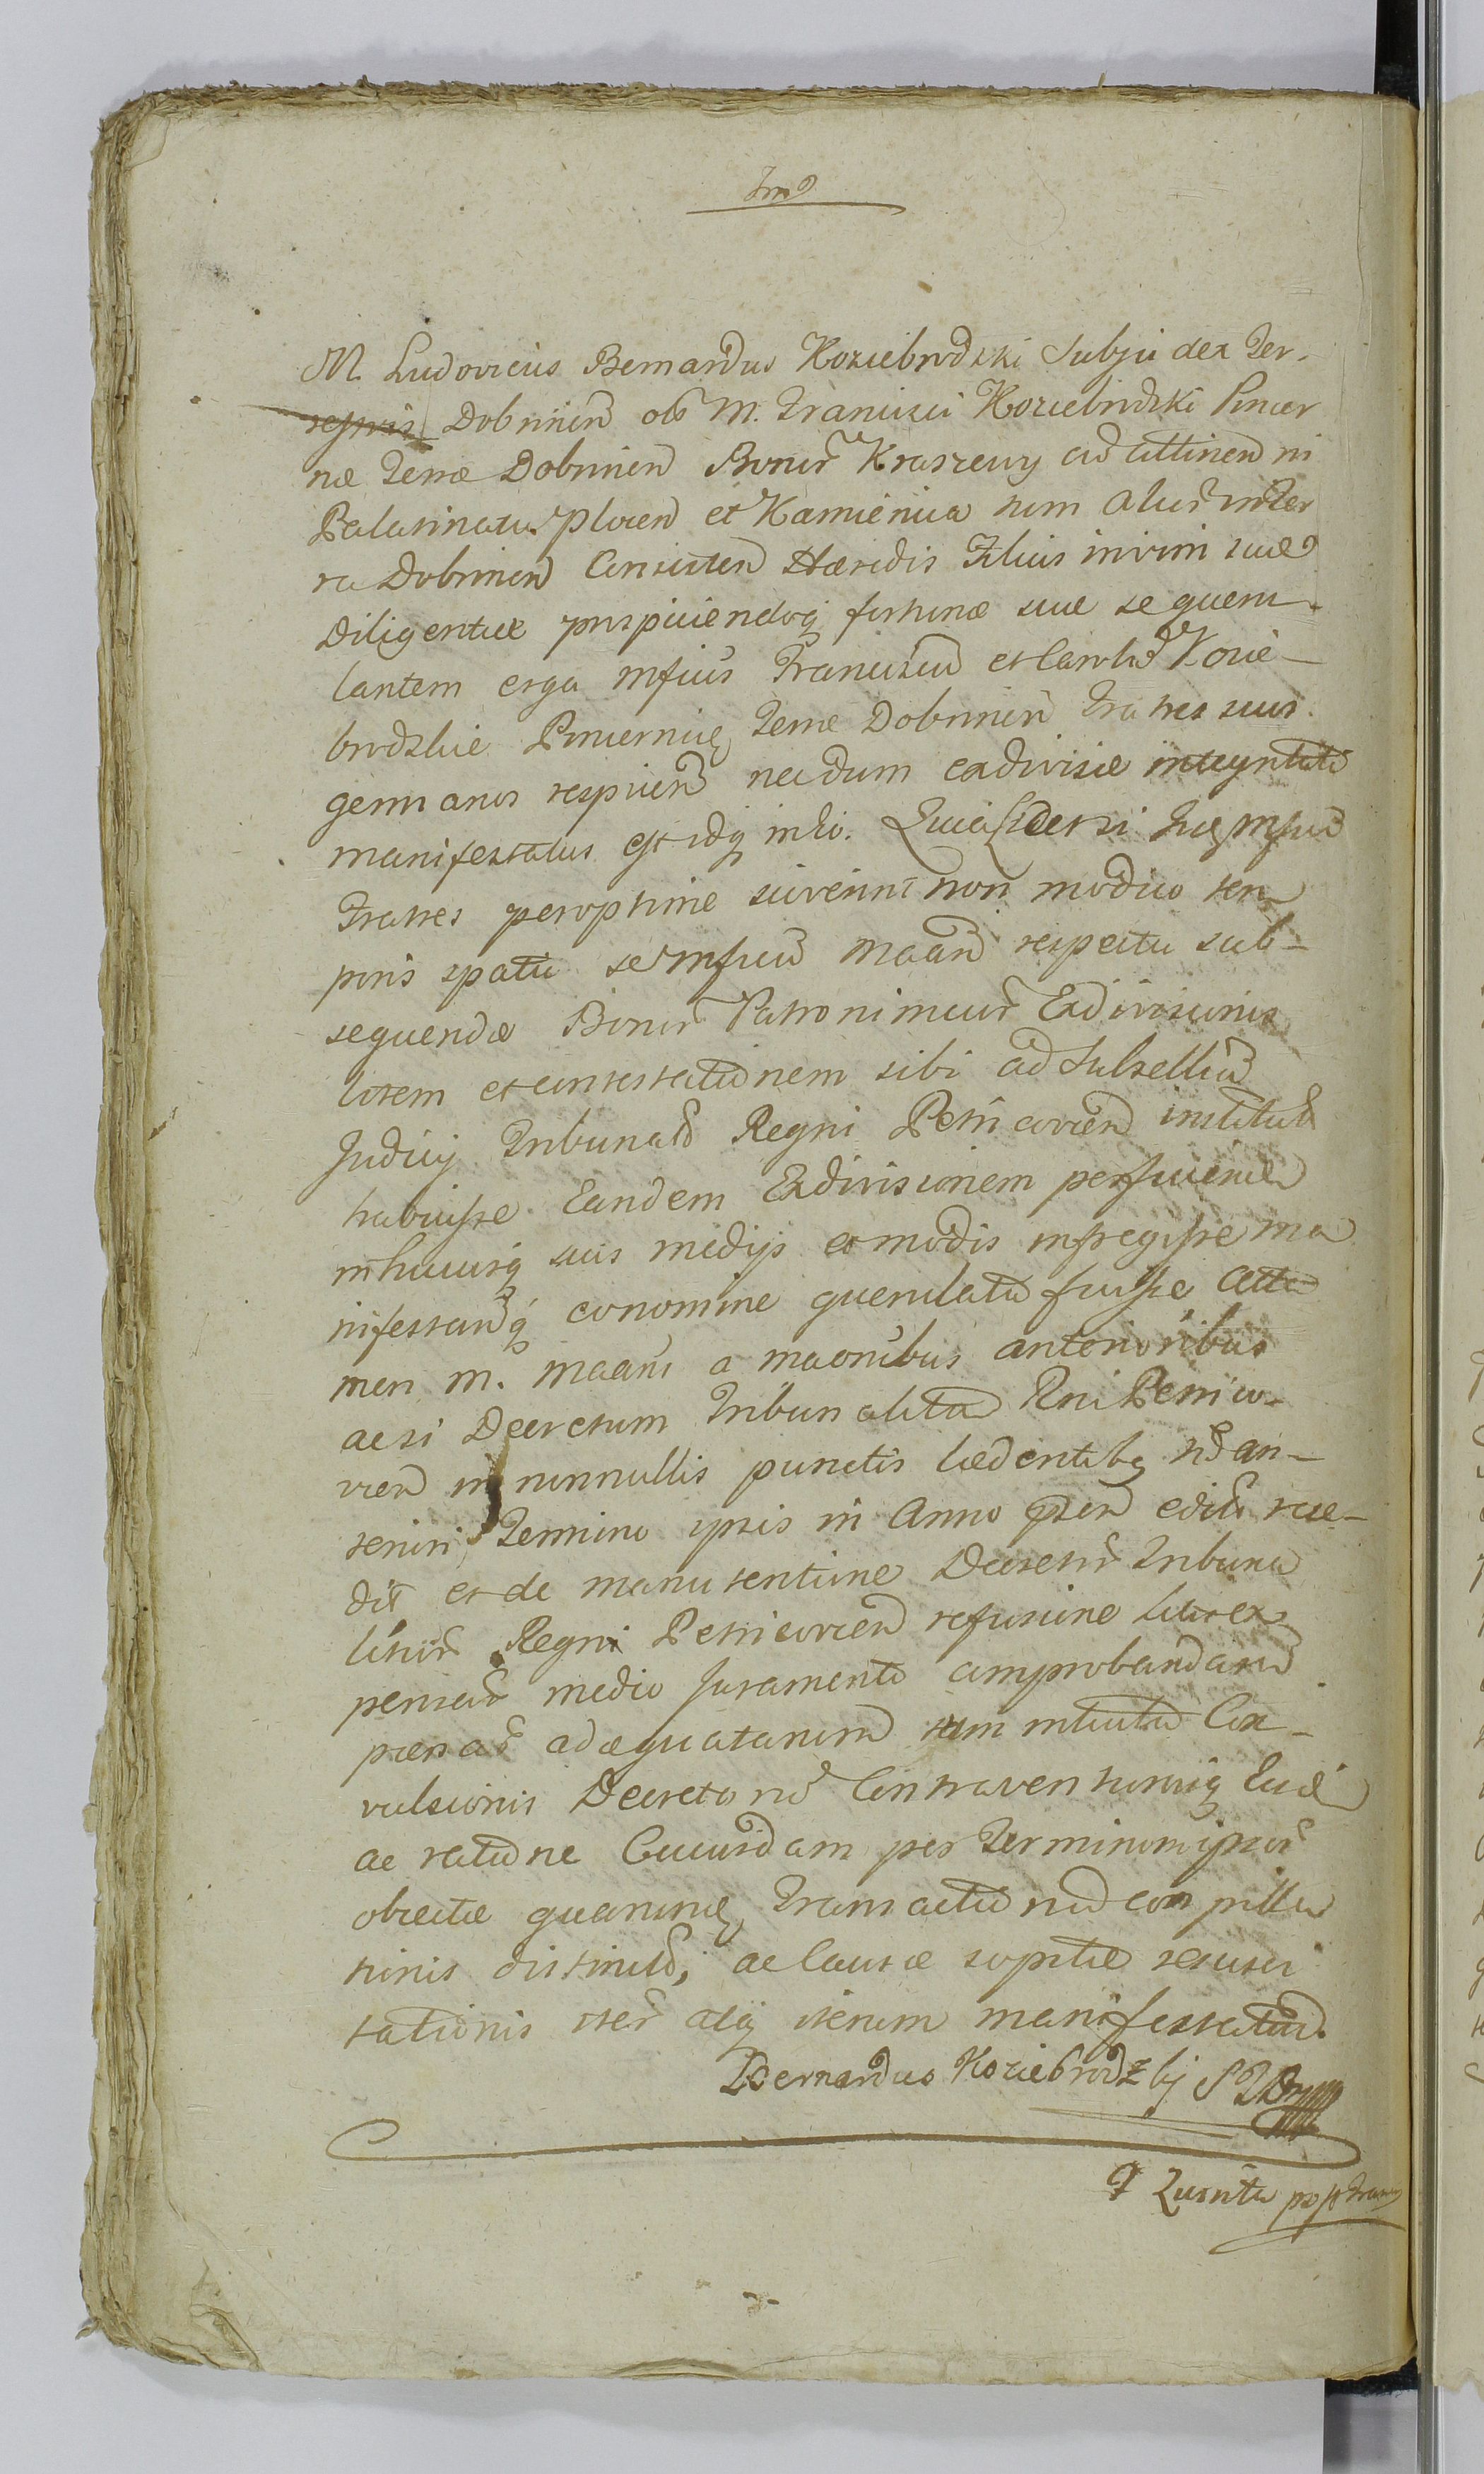 M. Ludovicus Bernardus Koziebrodzki Subjudex Ter-
Dobrinen ols M. Francisci Koziebrodzki Pincer
næ Terræ Dobrinen Bonor Kraszewy ad attinen in
Palatinatu Plocen et Kamienica tum alior in Ter
ra Dobrinen Consisten Hæredis Filius inivim suæ
Diligentiæ prospiciendoq fortunæ suæ sequem
lantem erga Mficus Franciscu et Carolu Kozie-
brodzkie Pincernię Terræ Dobrinen Fratres suos
germanos respicien necdum exdivisæ integritate
manifestatus est idq in eo. Quia licet si hię Mfici
Fratres peroptime sciverint non modico tem
poris spatio se Mficu Maan respectu sub-
sequendæ Bonor Patronimicor Exdivisionis
litem et contestationem sibi ad Subsellia
Judicy Tribunalis Regni Petricovien institut
habuisse Eandem Exdivisionem perficiend
in hucusq suis medijs et modis infregisse ma
nifestandoq eo nomine querulatu fuisse Atta
men M. Maans a maonibus anterioribus
ac si Decretum Tribunalita Rni Petrico-
vien in nonnullis punctis lædentibq
Termino ipsis in Anno pten edito rece-
dit et de manutentione Decretor Tribuna
litior Regni Petricovien refusione litis ex
pensar medio Juramento comprobandaru
pænar adæquatarum tum intuitu Con-
vulsionis Decretoru Contraventionisq Eisd
ac ratione Cuiusdam per Terminum ipsor
obiectæ quarumę Transactionu
distinct, ac Causæ sopitæ resusci
tationis iter atq iterum manifestatur.
Bernardus Koziebrodzky S T Dry